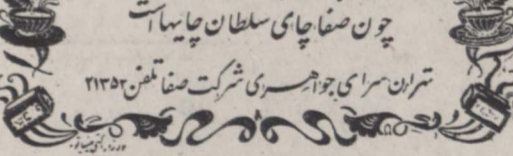 چون صفا چای سلطان چایها است
تهران سرای جواهری شرکت صفا تلفن ۲۱۳۵۲